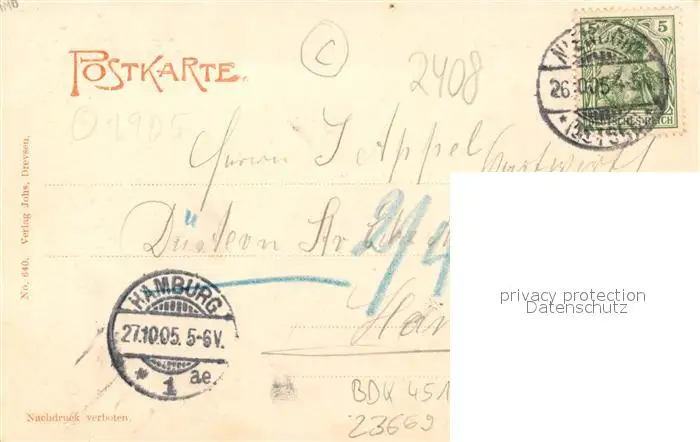 POSTKARTE.
©
2408
5
26.10.05
DEUTSCHES REICH
© 1905
Herrn J Appel
Gastwirt
Düstern Str
2/4
privacy protection
Datenschutz
HAMBURG
27.10.05. 5-6V.
* 1 ae.
Ham
BDK 451
23669
No. 640. Verlag Johs, Dreysen.
Nachdruck verboten.